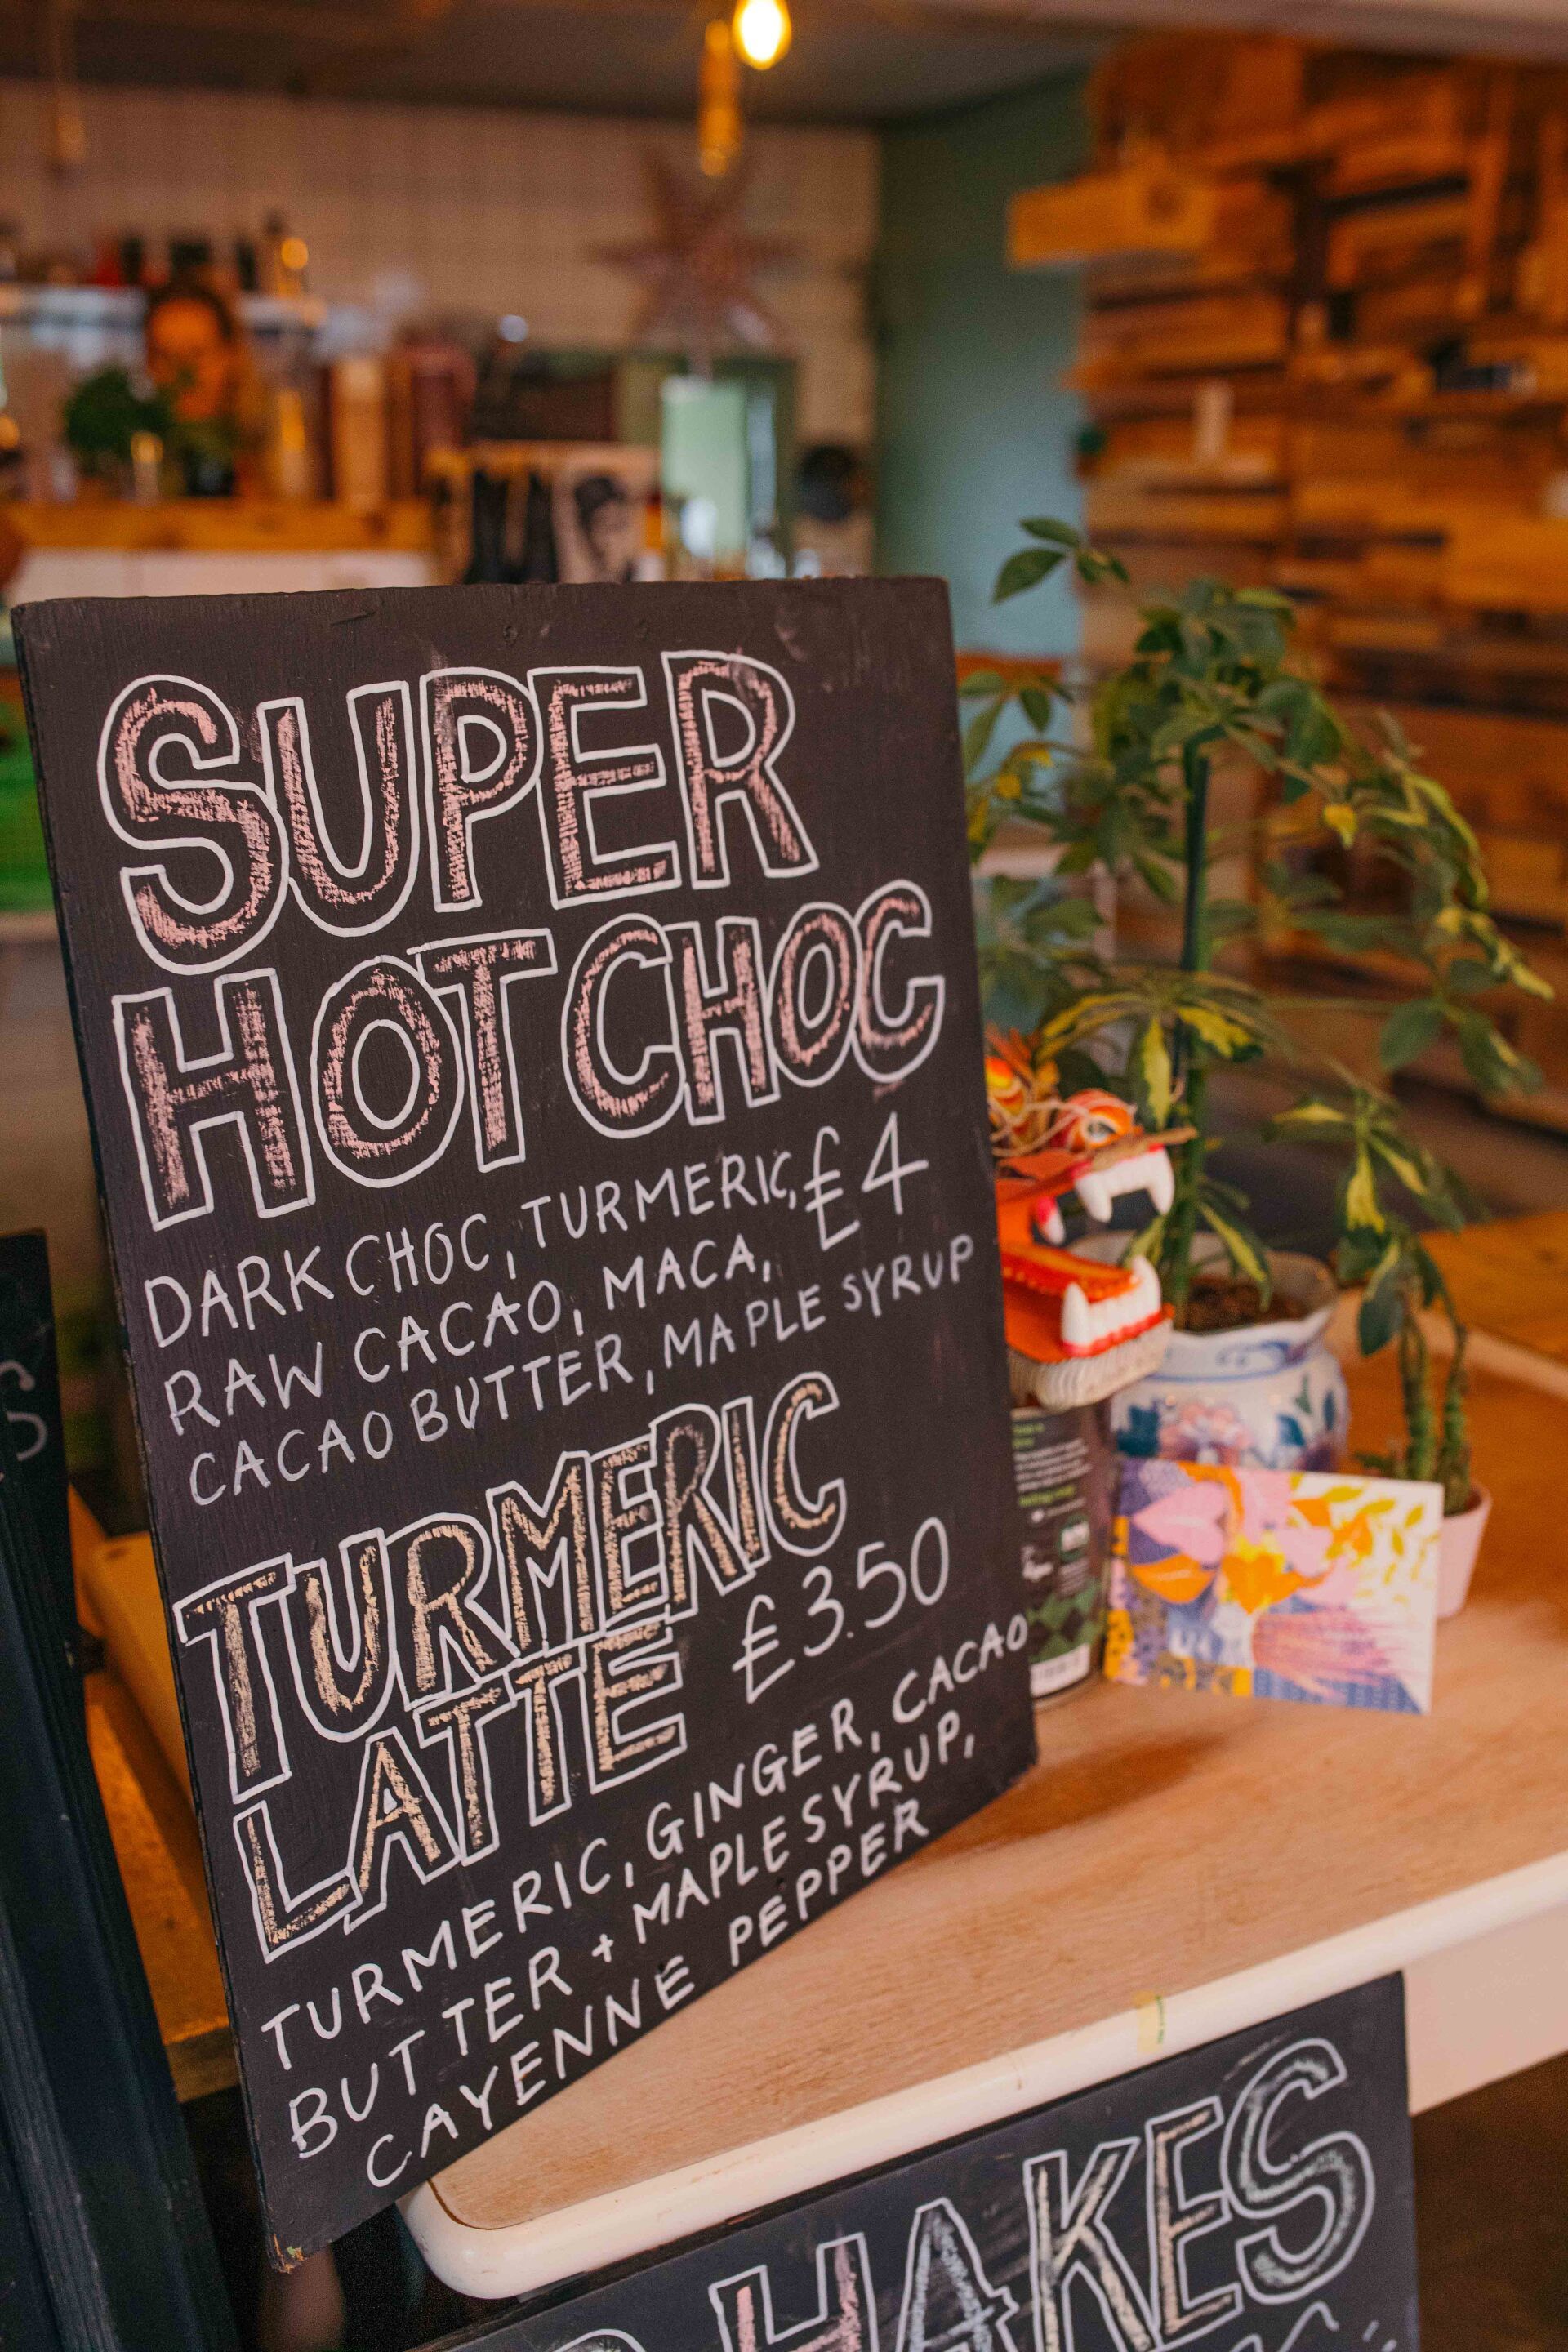 SUPER
HOT CHOC
£4
DARK CHOC, TURMERIC,
RAW CACAO, MACA,
CACAO BUTTER, MAPLE SYRUP
TURMERIC
LATTE £3.50
TURMERIC, GINGER, CACAO
BUTTER + MAPLE SYRUP,
CAYENNE PEPPER
HAKES